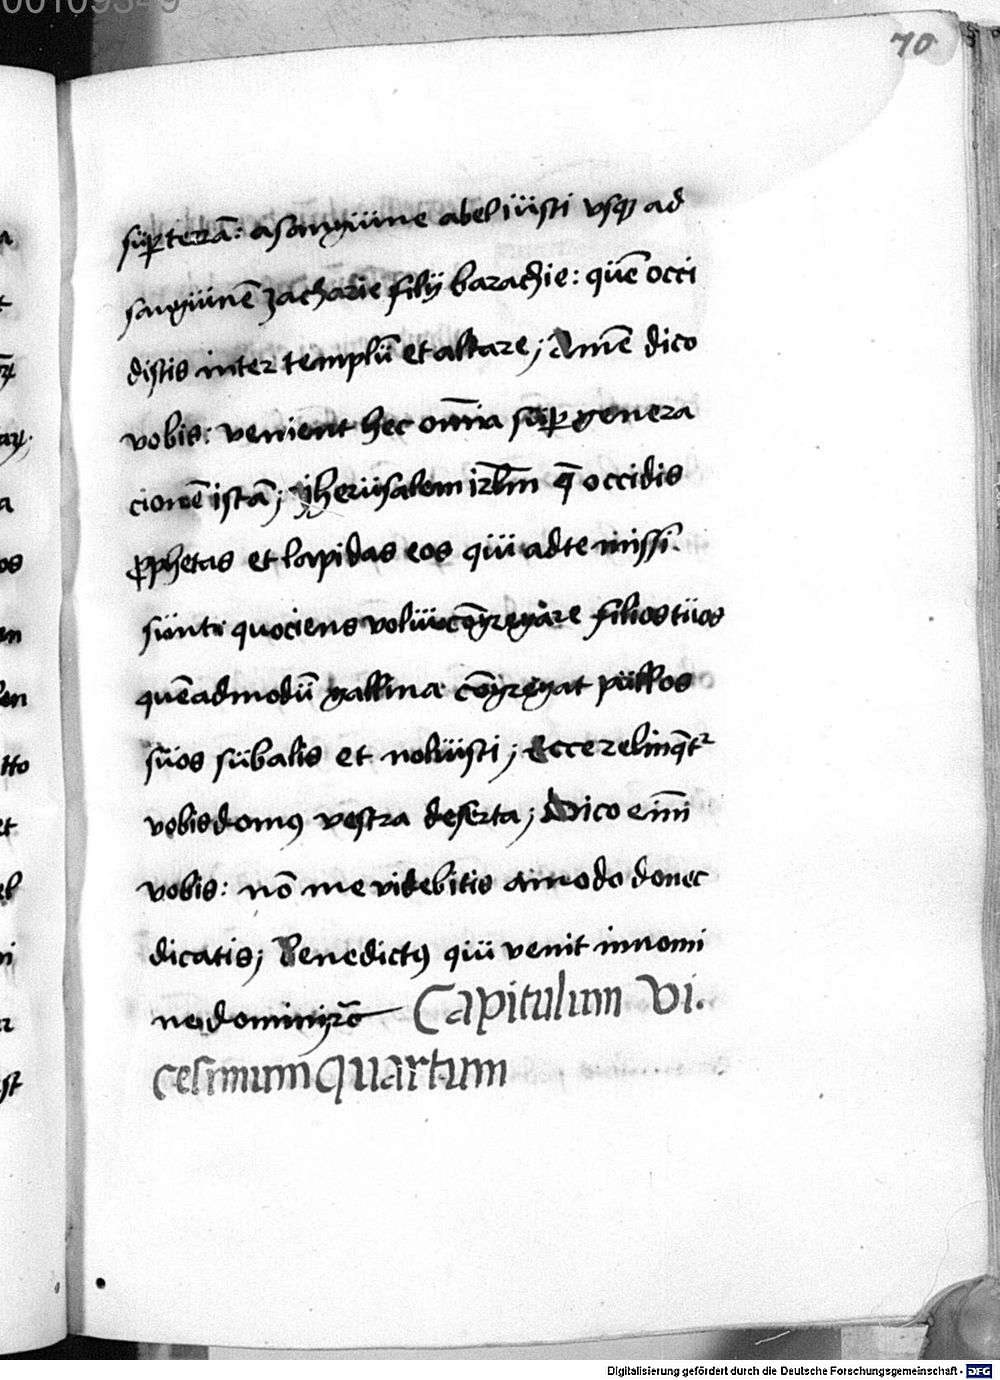 70
sup terrā: a sanguine abel iusti vsqꝫ ad
sanguinē zacharie filij barachie: quē occi
distis inter templū et altare; Amē dico
vobis: venient hec om̄ia sup genera
cionē istā; iherusalem irl̄m q̄ occidis
ꝓphetas et lapidas eos qui ad te missi
sunt: quociens volui cōgregare filios tuos
quēadmodū gallina cōgregat pullos
suos sub alis et noluisti; Ecce relinq̄tr
vobis domꝰ vestra deserta; Dico eīm
vobis: nō me videbitis amodo donec
dicatis; Benedictꝰ qui venit in nomi
ne domini; Capitulum vi.
cesimum quartum
Digitalisierung gefördert durch die Deutsche Forschungsgemeinschaft - DFG